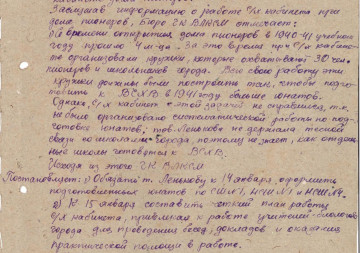 Заслушав информацию о работе с/х кабинета при
доме пионеров, Бюро ГК ВЛКСМ отмечает:
С времени открытия дома пионеров в 1940-41 учебном
году прошло 4 м-ца. За это время при с/х кабине-
те организовали кружки, которые охватывают 30 чел.
пионеров и школьников города. Всю свою работу эти
кружки должны были построить так, чтобы подго-
товить к ВСХВ в 1941 году юннатов.
Однако с/х кабинет с этой задачей не справился, т.к.
не было организовано систематической работы по под-
готовке юннатов; тов. не держала тесной
связи со школами города, поэтому не знает, как отдель-
ные школы готовятся к ВСХВ.
Исходя из этого ГК ВЛКСМ
Постановляет: 1) Обязать т. к 14 января оформить
подготовленных юннатов по СШ №1, НСШ №1 и НСШ №4.
2) К 15 января составить четкий план работы
с/х кабинета, привлекая к работе учителей-биологов
города для проведения бесед, докладов и оказания
практической помощи в работе.